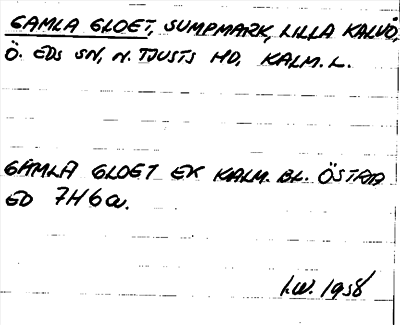 GAMLA GLOET, SUMPMARK, LILLA KALVÖ,
Ö. EDS SN, N. TJUSTS HD, KALM. L.
GAMLA GLOET EK KALM. BL. ÖSTRA
ED 7H6a.
I.W. 1958